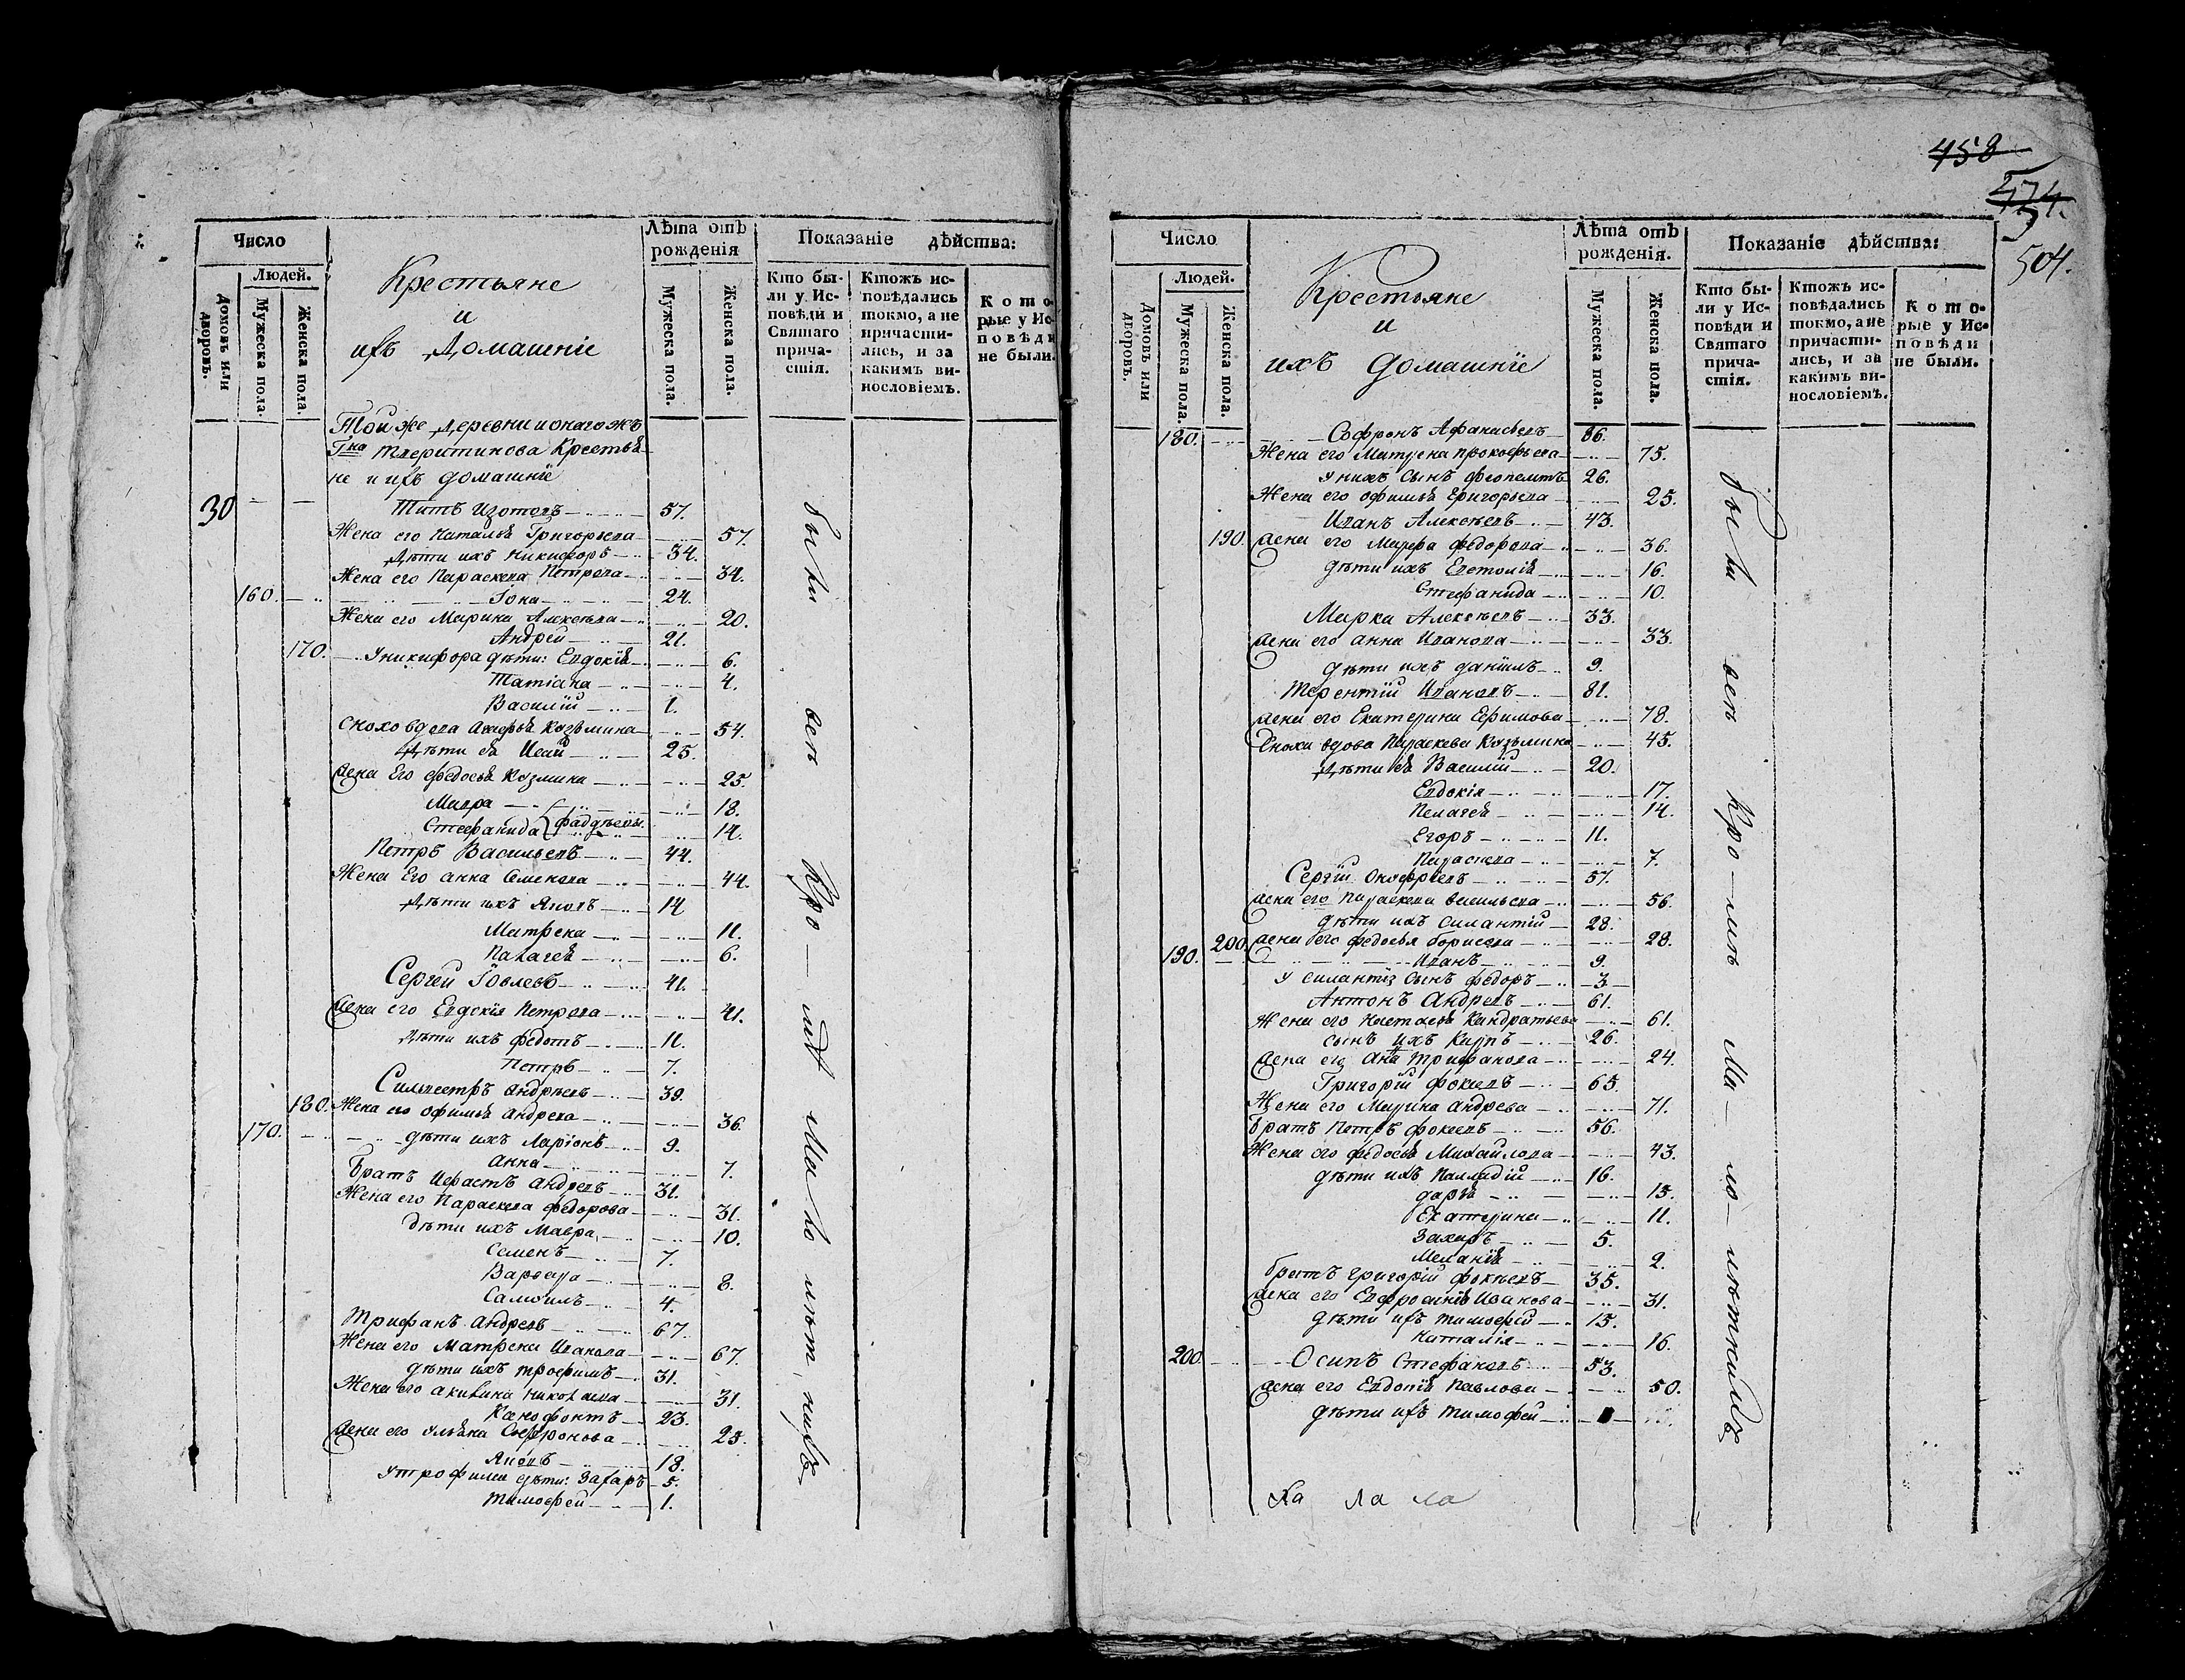 Число
Людей.
Домовъ или дворовъ.
Мужеска пола.
Женска пола.
Крестьяне
и
ихъ Домашніе
Лѣта отъ
рожденія
Мужеска пола.
Женска пола.
Показаніе дѣйства:
Кто бы-
ли у Ис-
повѣди и
Святаго
прича-
стія.
Ктожъ ис-
повѣдались
токмо, а не
причасти-
лись, и за
какимъ ви-
нословіемъ.
К о т о-
рые у Ис-
п о в ѣ д и
не были.
Той же деревни и онагожъ
Гна Крестья
не и ихъ домашніе
30 Титъ Изотовъ 57.
Жена его Наталья Григорьева 57.
Дѣти ихъ Никифоръ 34.
Жена его Параскева Петрова 34.
160. Іона 24.
Жена его Марина Алексѣева 20.
Андрей 21.
170. У Никифора дѣти: Евдокія 6.
Татіана 4.
Василій 1.
Сноха вдова Козьмина 54.
Дѣти ея Исай 25.
Жена Его Федосья Козмина 25.
Мавра 18.
Стефанида Фадѣевы. 14.
Петръ Васильевъ 44.
Жена Его Анна Семенова 44.
Дѣти ихъ Яковъ 14
Матрена 11.
Палагея 6.
Сергей Іовлевъ 41.
Жена его Евдокія Петрова 41.
Дѣти ихъ Федотъ 11.
Петръ 7.
Сильвестръ Андреевъ 39.
180. Жена его Офимья Андреева 36.
170. дѣти ихъ Ларіонъ 9.
Анна 7.
Братъ Андреевъ 31.
Жена его Параскева Федорова 31.
Дѣти ихъ Мавра 10.
Семенъ 7.
Варвара 8.
Самоилъ 4.
Трифанъ Андреевъ 67.
Жена его Матрена Иванова 67.
дѣти ихъ Трофимъ 31.
Жена его Акилина Николаева 31.
Ксенофонтъ 23.
Жена его Ульяна Софронова 25.
Яковъ 18.
У Трофима дѣти: Захаръ 5.
Тимофей 1.
были всѣ Кро-мѣ мало лѣт ныхъ
458
574.
504.
Число
Людей.
Домовъ или дворовъ.
Мужеска пола.
Женска пола.
Крестьяне
и
ихъ домашніе
Лѣта отъ
рожденія.
Мужеска пола.
Женска пола.
Показаніе дѣйства:
Кто бы-
ли у Ис-
повѣди и
Святаго
прича-
стія.
Ктожъ ис-
повѣдались
токмо, а не
причасти-
лись, и за
какимъ ви-
нословіемъ.
К о т о-
рые у Ис-
п о в ѣ д и
не были.
180. Софронъ Афанасьевъ 86.
Жена его Матрена Прокофьева 75.
у нихъ сынъ Феопемптъ 26.
Жена его Офимья Григорьева 25.
Иванъ Алексѣевъ 43.
190. Жена его Марфа Федорова 36.
дѣти ихъ 16.
Стефанида 10.
Марка Алексѣевъ 33.
Жена его Анна Иванова 33.
дѣти ихъ Даніилъ 9.
Терентій Ивановъ 81.
Жена его Екатерина Ефимова 78.
Сноха вдова Параскева Козьмина 45.
Дѣти ея Василій 20.
Евдокія 17.
Пелагея 14.
Егоръ 11.
Параскева 7.
Сергій Онофріевъ 57.
Жена его Параскева Васильева 56.
дѣти ихъ Силантій 28.
200. Жена его Федосья Борисова 28.
190. Иванъ 9.
У Силантія сынъ Федоръ 3
Антонъ Андреевъ 61.
Жена его Настасья Кандратьева 61.
сынъ ихъ Карпъ 26.
Жена его Анна Трифанова 24.
Григорій Фокеевъ 65.
Жена его Марина Андреева 71.
Братъ Петръ Фокеевъ 56.
Жена его Федосья Михайлова 43.
дѣти ихъ Палладій 16.
Дарья 15.
Екатерина 11.
Захаръ 5.
Меланія 2.
братъ Григорій Фокѣевъ 35.
Жена его Евфросинія Иванова 31.
дѣти ихъ Тимофей 15.
Наталія 16.
200. Осипъ Стефановъ 53.
Жена его Евдокія Павлова 50.
дѣти ихъ Тимофей
были всѣ Кро-мѣ Ма-ло-лѣтныхъ
Ха ла ла